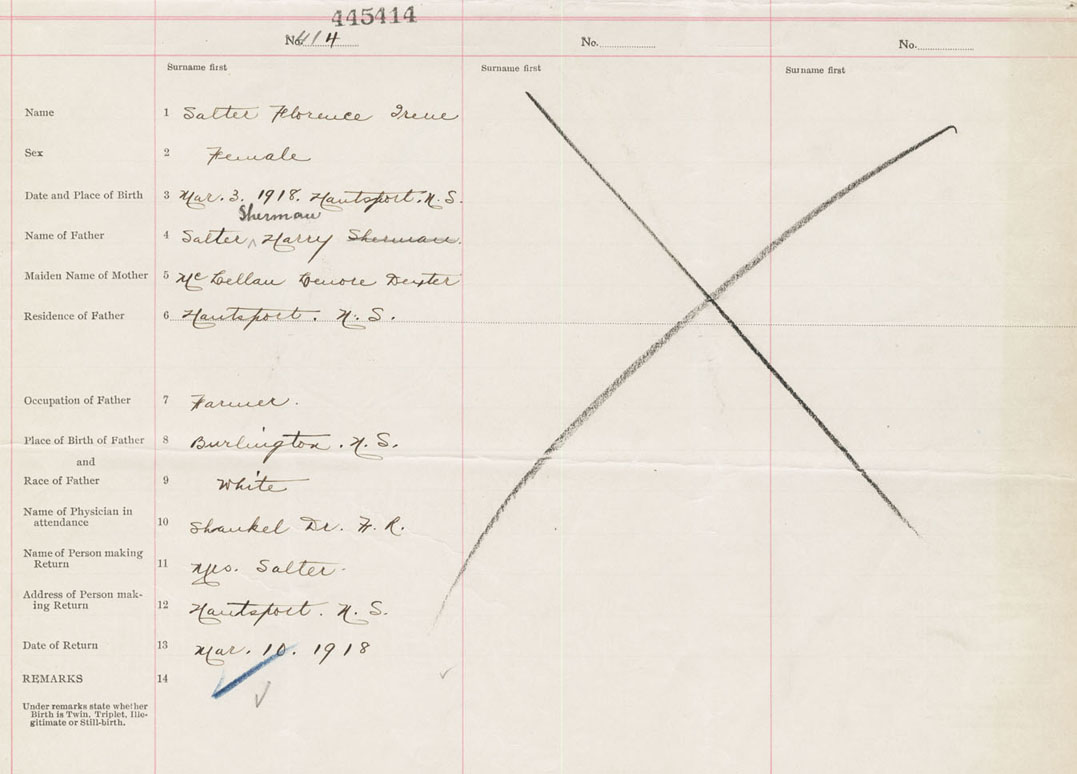 445414
No. 414
No.
No.
Surname first
Surname first
Surname first
Name 1 Salter Florence Irene
Sex 2 Female
Date and Place of Birth 3 Mar. 3. 1918. Hantsport. N.S.
Sherman
Name of Father 4 Salter ^ Harry Sherman.
Maiden Name of Mother 5 McLellan Lenore Dexter
Residence of Father 6 Hantsport. N. S.
Occupation of Father 7 Farmer.
Place of Birth of Father 8 Burlington. N. S.
and
Race of Father 9 White
Name of Physician in
attendance 10 Shankel Dr. F. R.
Name of Person making
Return 11 Mrs. Salter.
Address of Person mak-
ing Return 12 Hantsport. N. S.
Date of Return 13 Mar. 10. 1918
REMARKS 14
Under remarks state whether
Birth is Twin, Triplet, Ille-
gitimate or Still-birth.